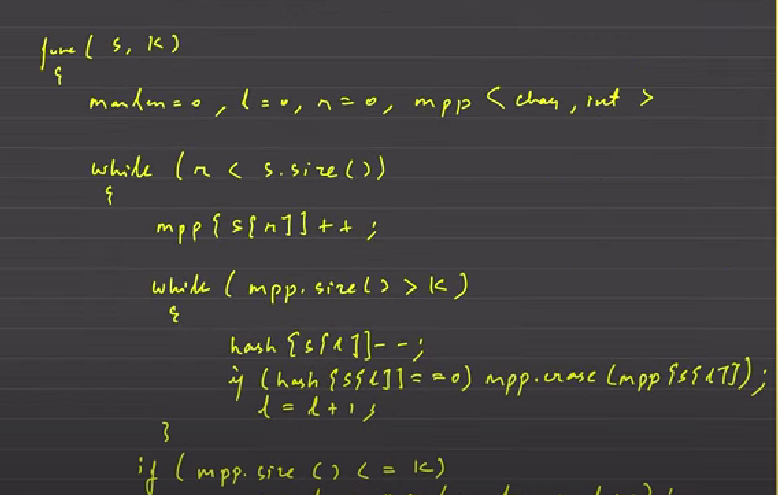 func( s, k)
{
maxlen = 0, l = 0, r = 0, mpp < char, int >
while (r < s.size())
{
mpp[s[r]]++;
while (mpp.size() > k)
{
hash[s[l]]--;
if (hash[s[l]] == 0) mpp.erase(mpp[s[l]]);
l = l + 1;
}
if (mpp.size() <= k)